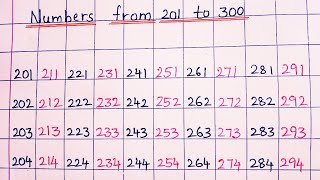 Numbers from 201 to 300
201 211 221 231 241 251 261 271 281 291
202 212 222 232 242 252 262 272 282 292
203 213 223 233 243 253 263 273 283 293
204 214 224 234 244 254 264 274 284 294